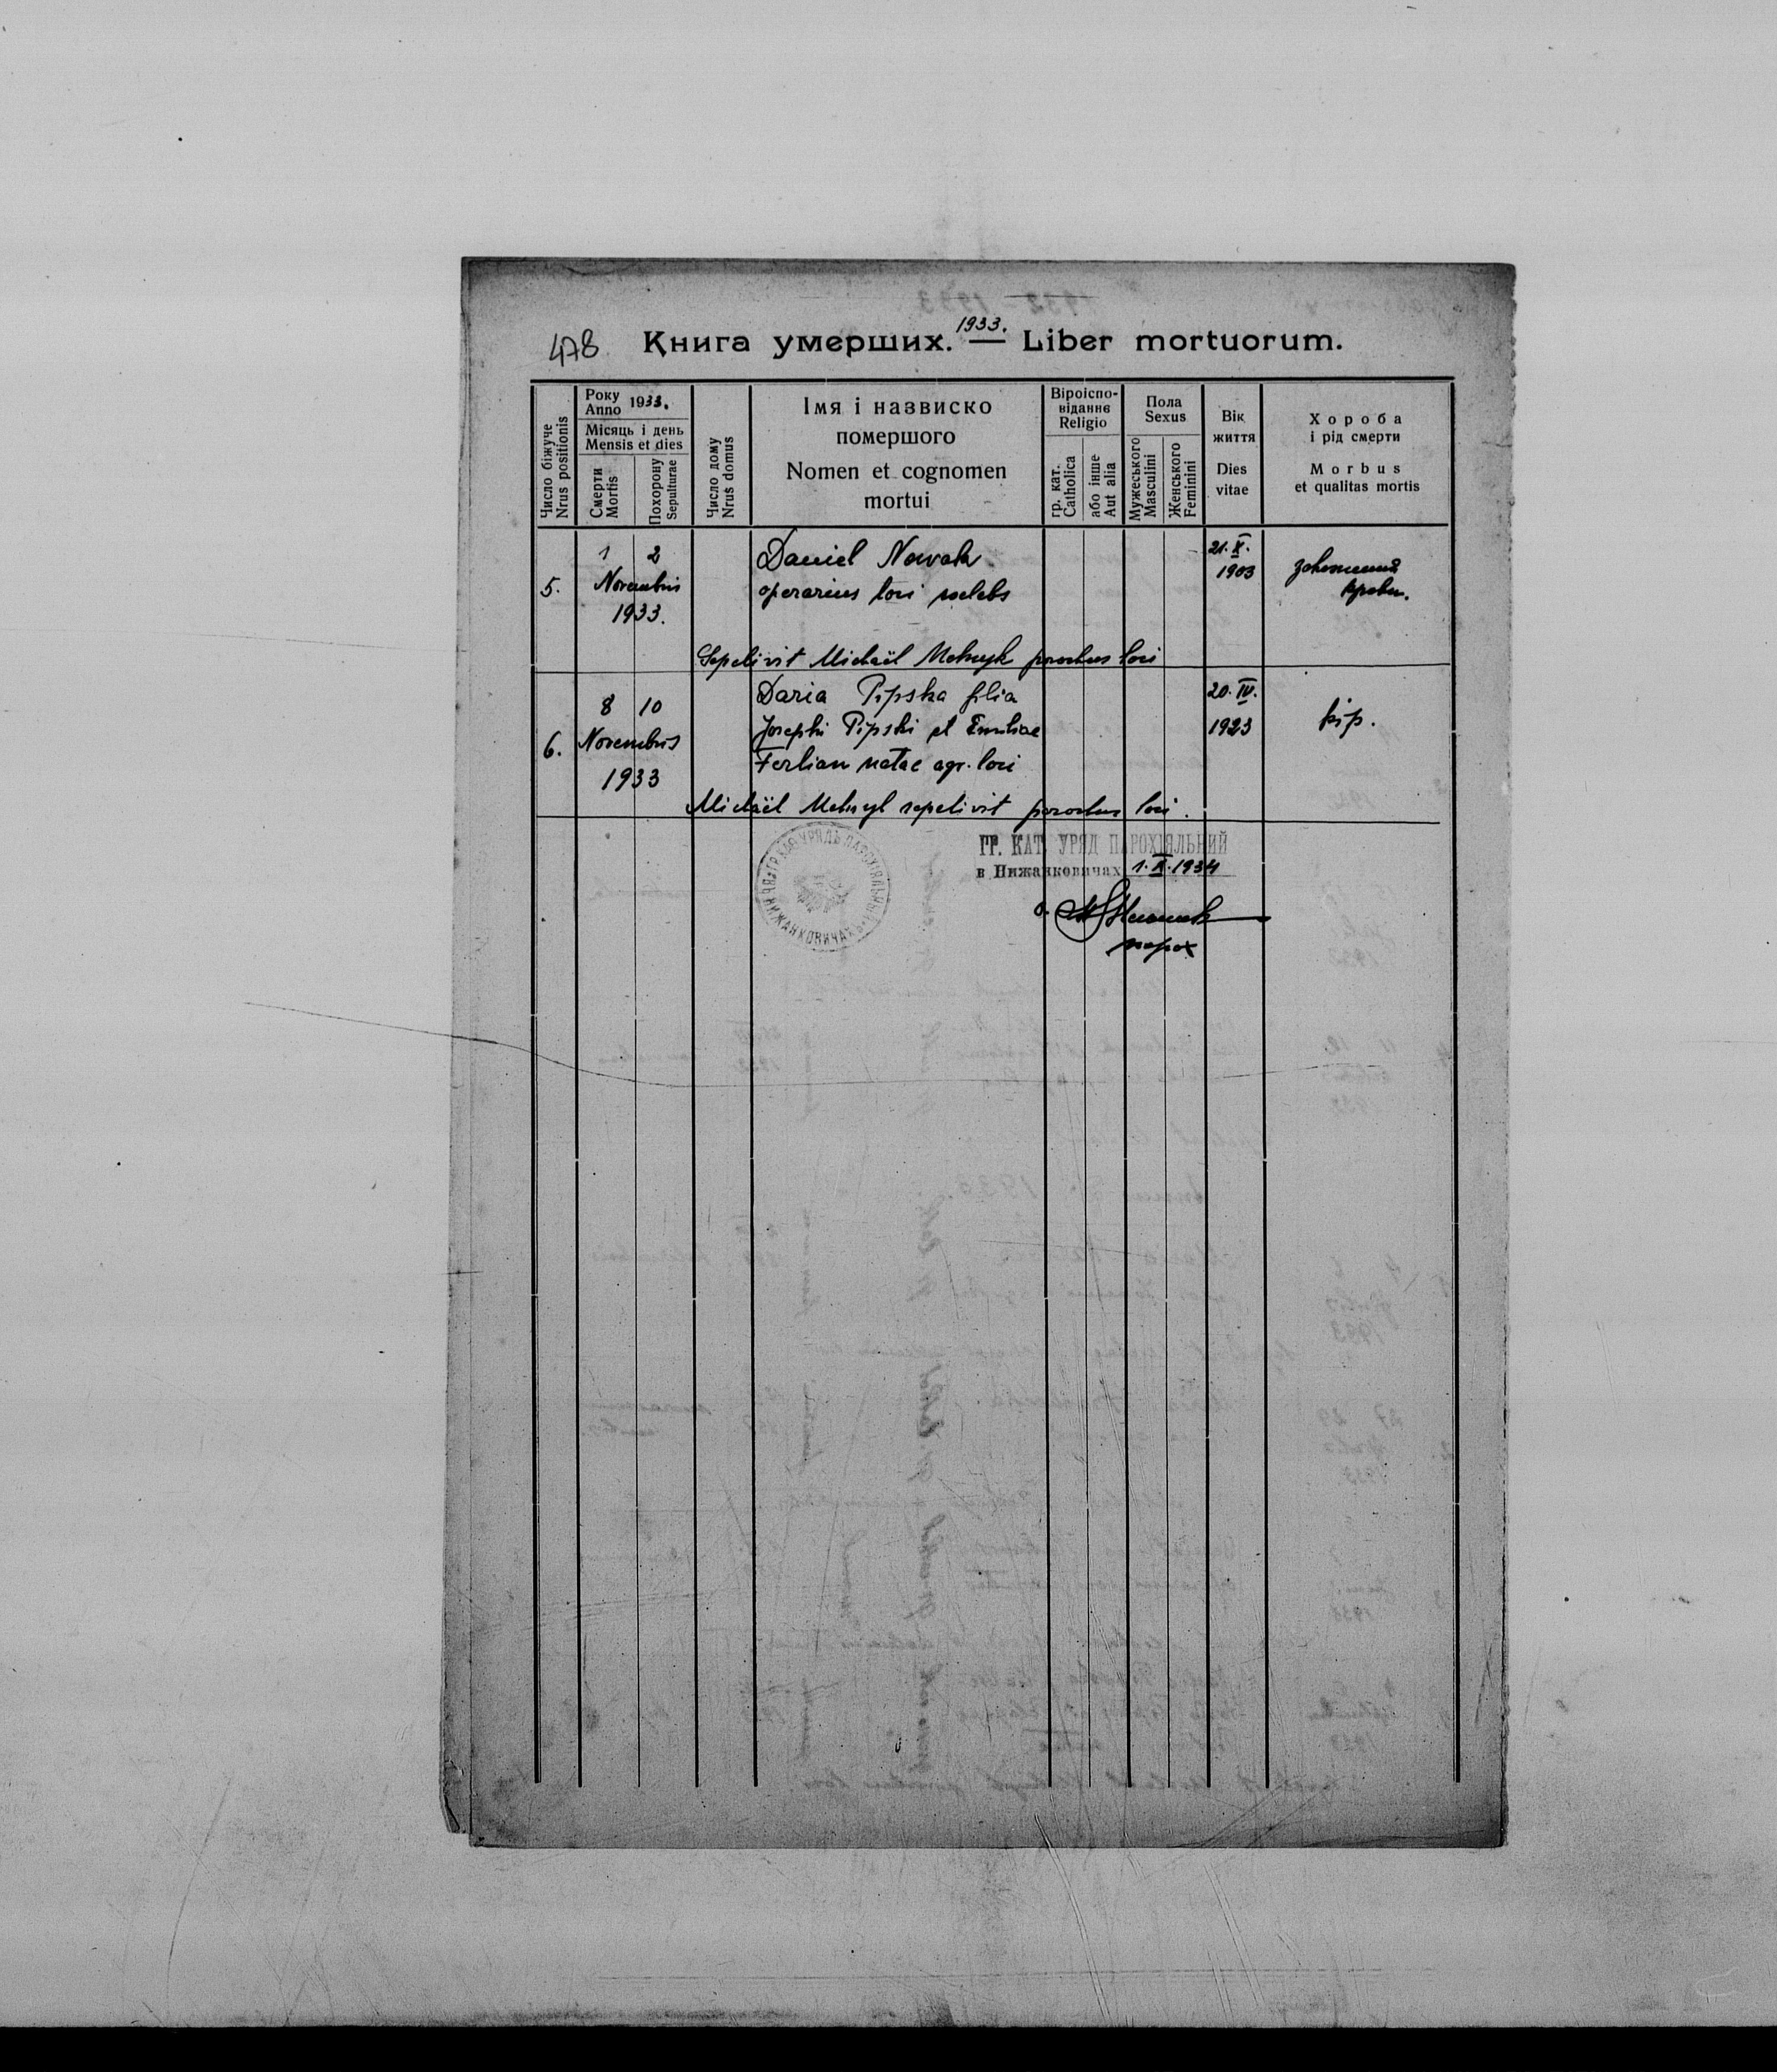 478
1933.
Книга умерших. — Liber mortuorum.
Число біжуче
Nrus positionis
Року
Anno 1933.
Місяць і день
Mensis et dies
Смерти
Mortis
Похорону
Sepulturae
Число дому
Nrus domus
Імя і назвиско
помершого
Nomen et cognomen
mortui
Віроіспо-
віданнє
Religio
гр. кат.
Catholica
або інше
Aut alia
Пола
Sexus
Мужеського
Masculini
Женського
Feminini
Вік
життя
Dies
vitae
Хороба
і рід смерти
Morbus
et qualitas mortis
5.
1 2
Novembris
1933.
Daniel Nowak.
operarius loci
21. X.
1903
крови.
Sepelivit Michaël Melnyk parochus loci
6.
8 10
Novembris
1933
Daria Pipska filia
Josephi Pipski et Emiliae
Ferlian natae agr. loci
20. IV.
1923
кір.
Michaël Melnyk sepelivit parochus loci.
ГР. КАТ. УРЯД ПАРОХІЯЛЬНИЙ
в Нижанковичах 1. 1934
о.
парох
ГР. КАТ. УРЯДЪ ПАРОХІЯЛЬНЫЙ ВЪ НИЖАНКОВИЧАХЪ